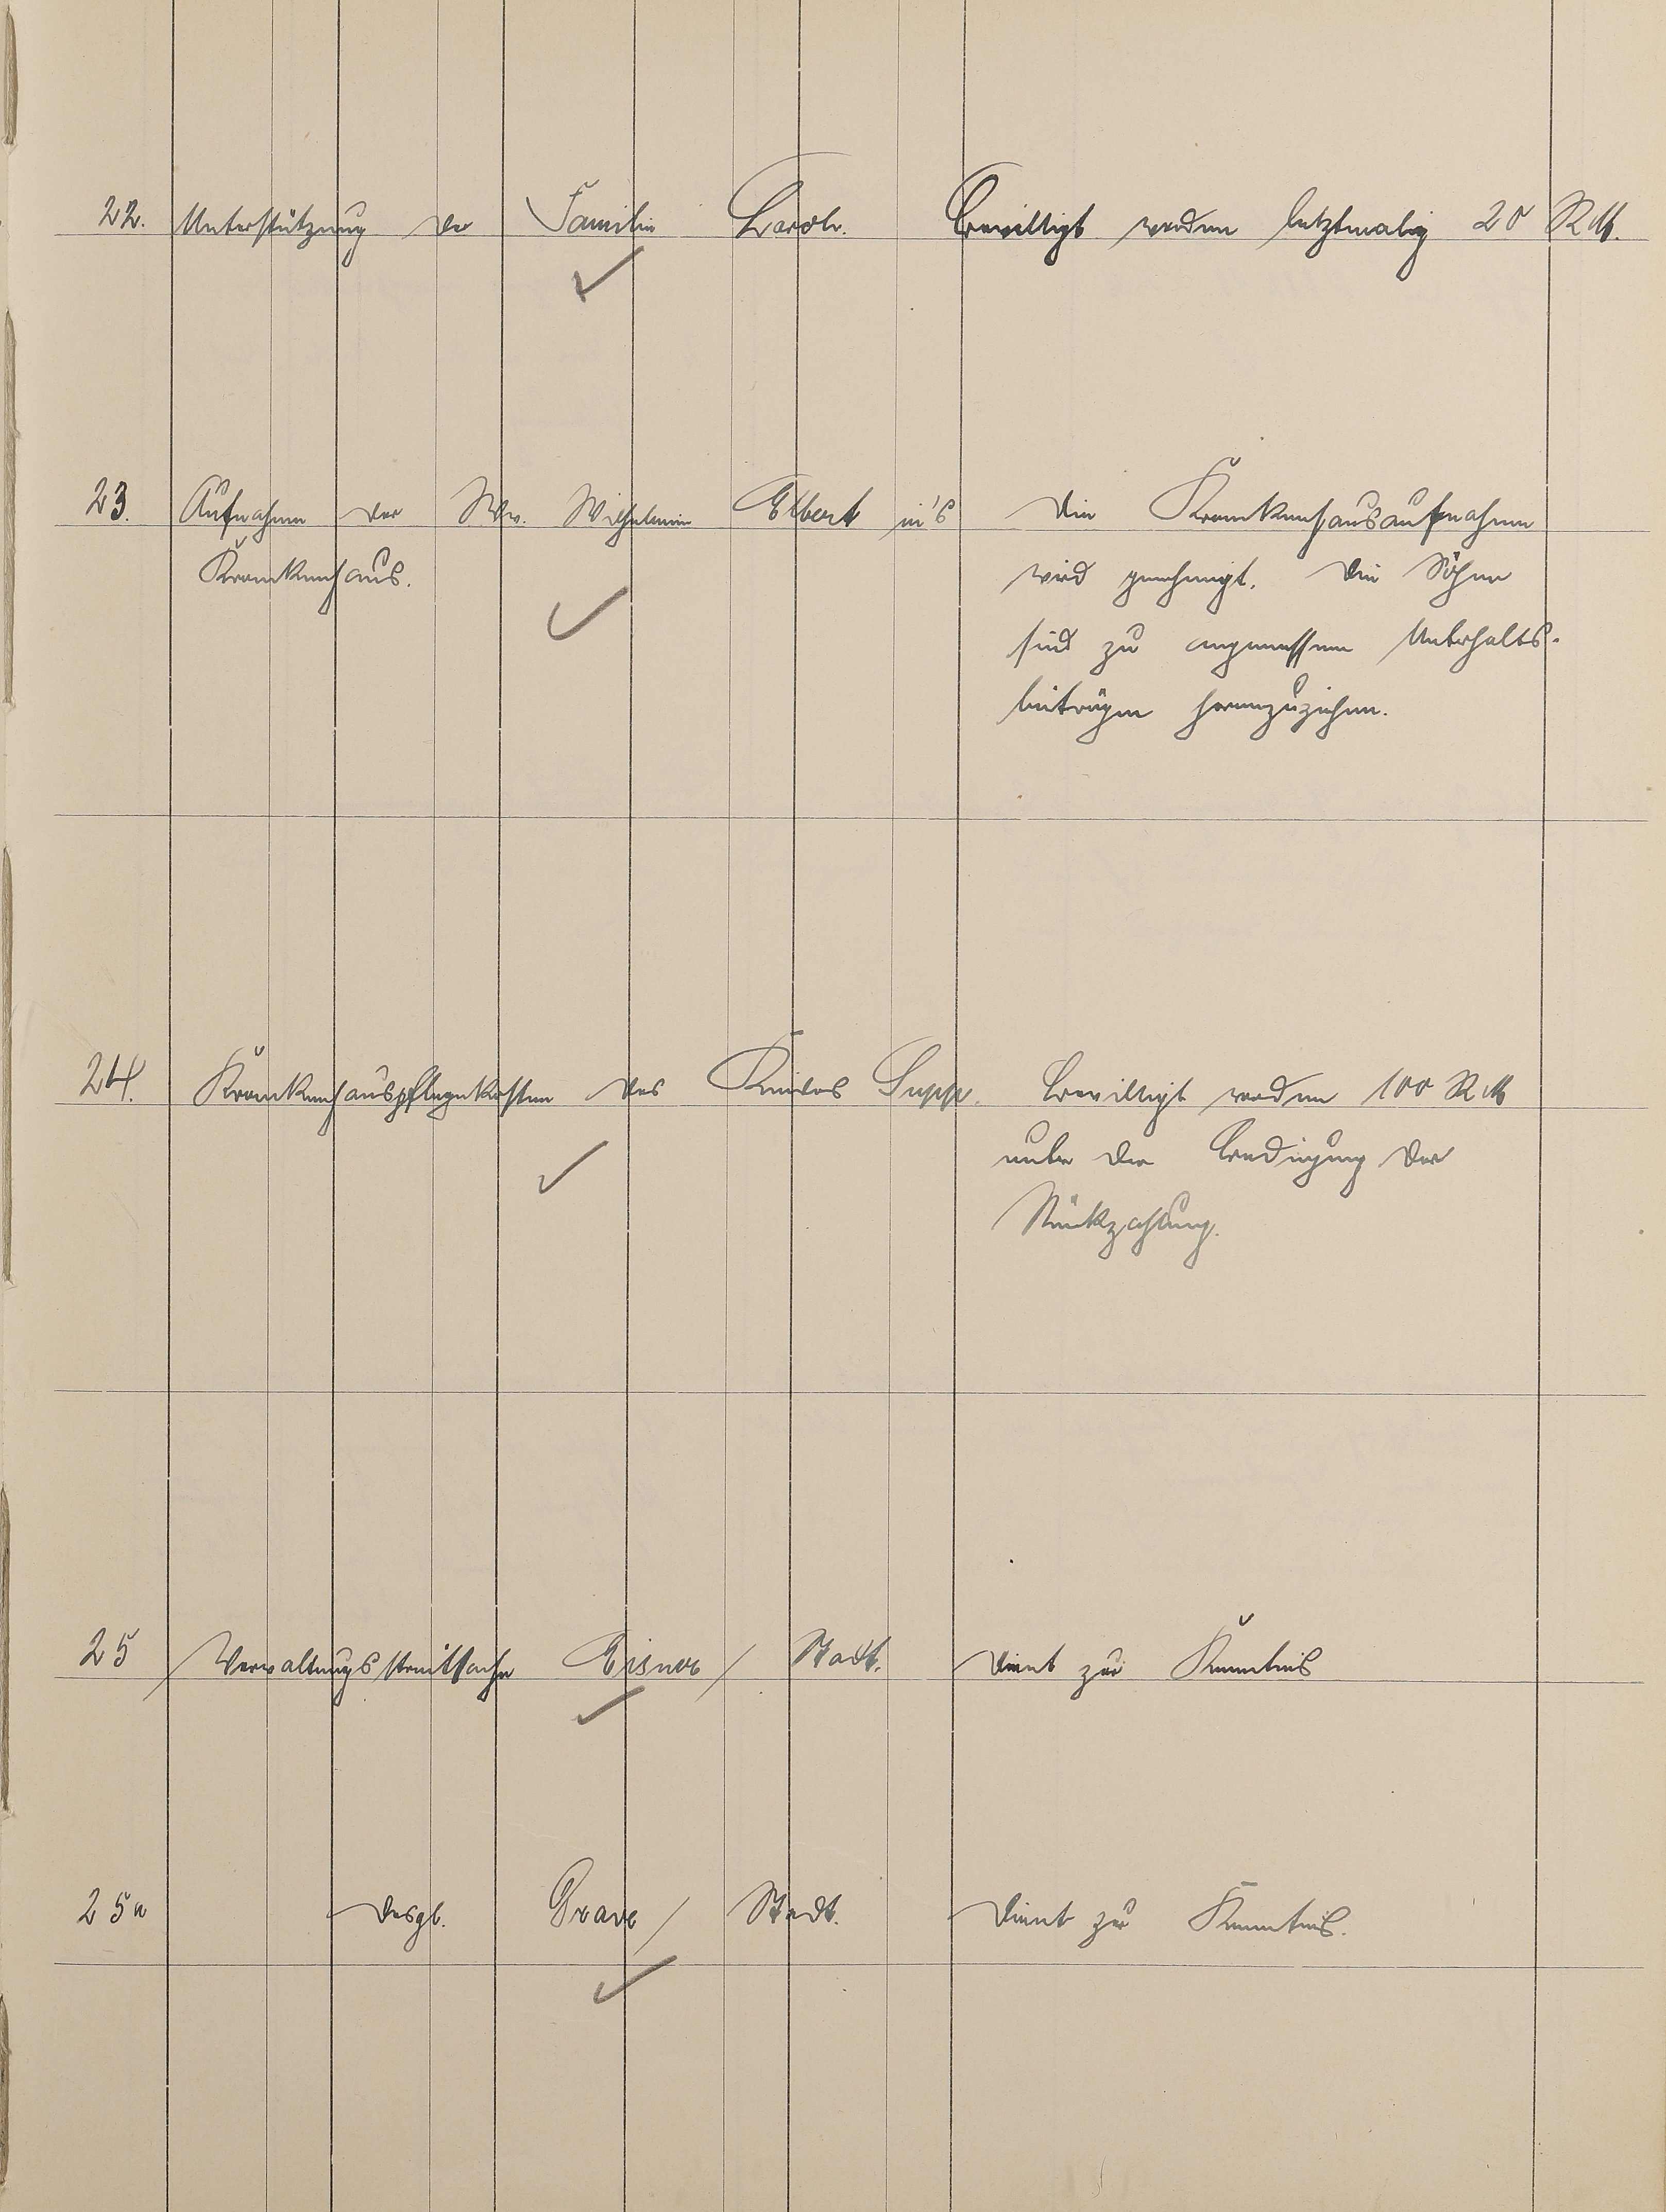 22. Unterstützung der Familie Barth. Bewilligt werden letztmalig 20 RM.
23. Aufnahme der Ww. Wilhelmine Elbert in's Die Krankenhausaufnahme
Krankenhaus. wird genehmigt. Die Söhne
sind zu angemessenen Unterhalts-
beiträgen heranzuziehen.
24. Krankenhauspflegekosten des Kindes Supp. Bewilligt werden 100 RM
unter der Bedingung der
Rückzahlung.
25 Verwaltungsstreitsache Eisner / Stadt. dient zur Kenntnis
25a desgl. Grave / Stadt. dient zur Kenntnis.